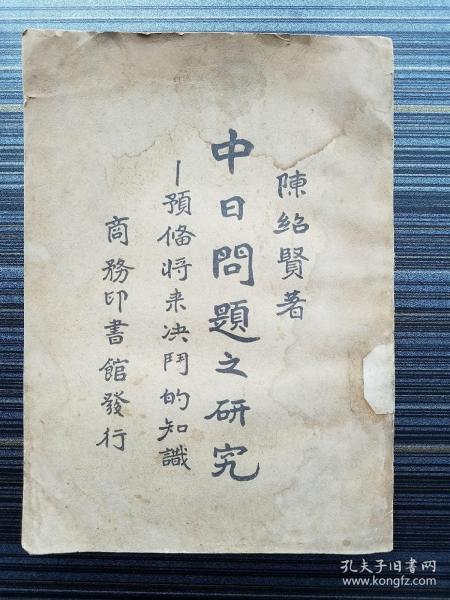 陳紹賢著
中日問題之研究
—預備將来决鬥的知識
商務印書館發行
孔夫子旧书网
www.kongfz.com